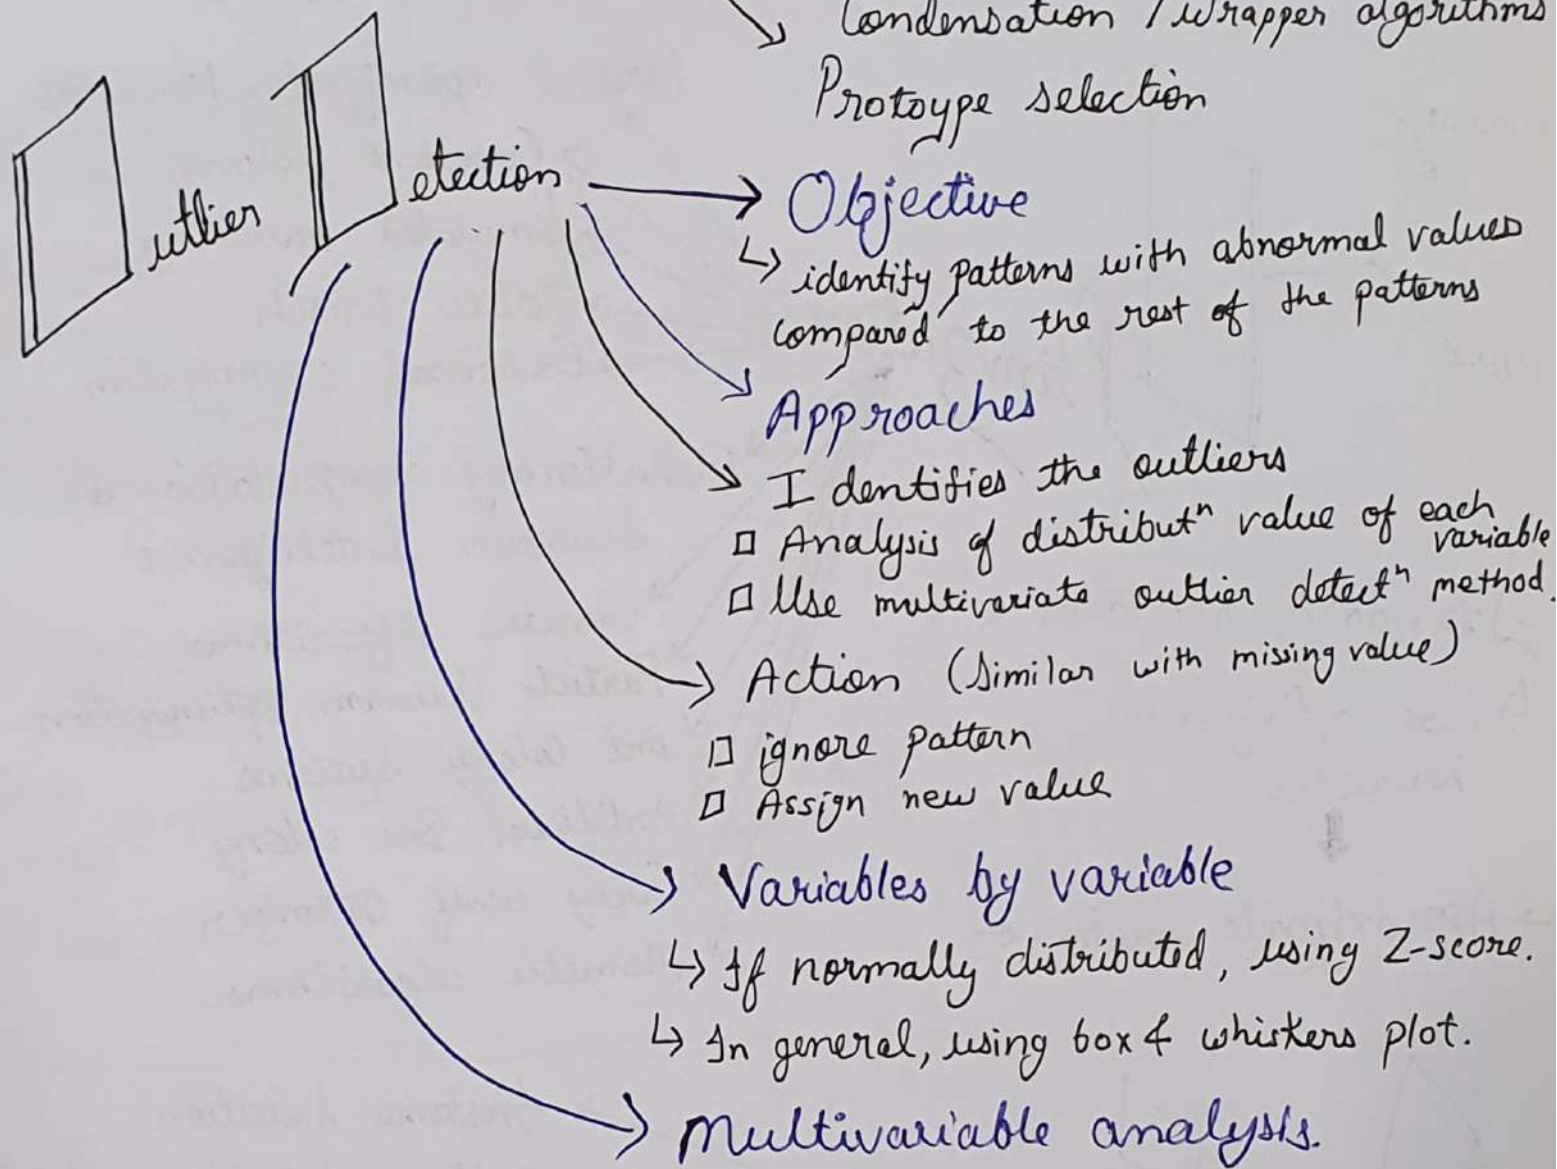 Condensation / Wrapper algorithms
Protoype selection
Outlier Detection
Objective
↳ identify patterns with abnormal values
compared to the rest of the patterns
Approaches
Identifies the outliers
□ Analysis of distributⁿ value of each
variable
□ Use multivariate outlier detectⁿ method.
Action (Similar with missing value)
□ ignore pattern
□ Assign new value
Variables by variable
↳ If normally distributed, using Z-score.
↳ In general, using box & whiskers plot.
Multivariable analysis.